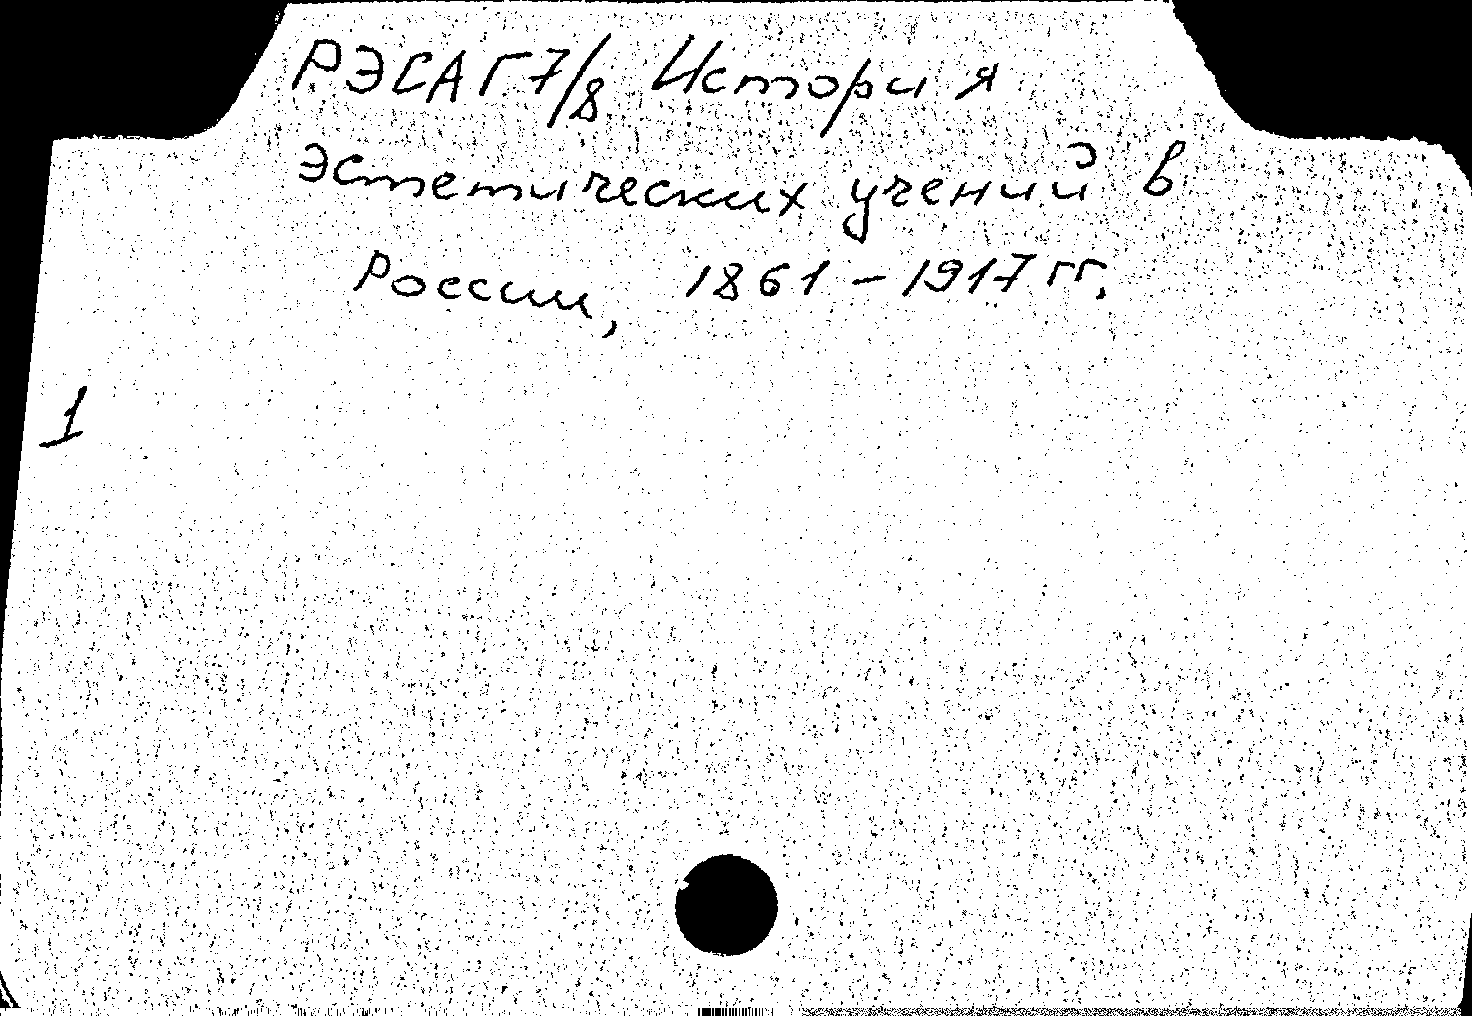 РЭСАГ7/8 История
эстетических учений в
России, 1861-1917 гг.
1